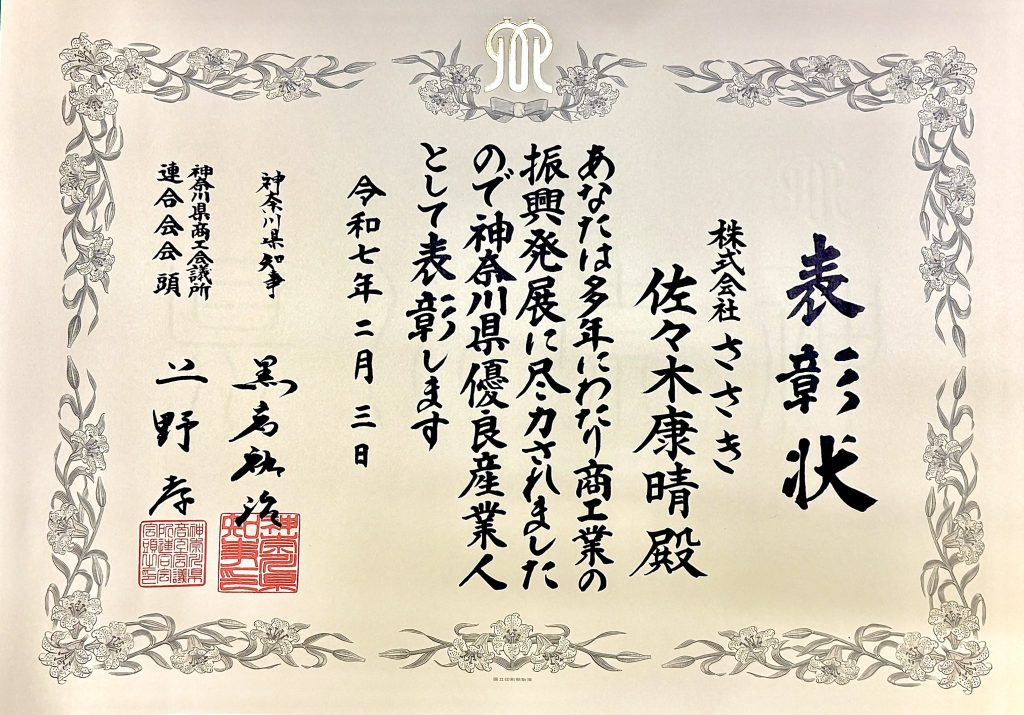 表彰状
株式会社ささき
佐々木康晴殿
あなたは多年にわたり商工業の
振興発展に尽力されました
ので神奈川県優良産業人
として表彰します
令和七年二月三日
神奈川県知事
黒岩祐治
神奈川県商工会議所
連合会会頭
上野孝
神奈川県
知事之印
神奈川県
商工会議
所連合会
会頭之印